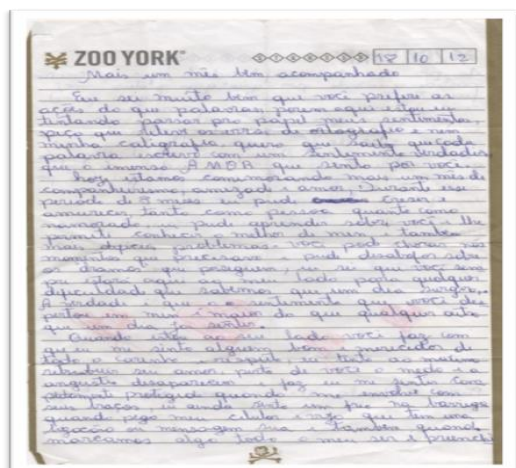 ZOO YORK
18 10 12
Mais um mês bem acompanhado
Eu sei muito bem que você prefere as
ações do que palavras, porem aqui estou eu
tentando passar pro papel meus sentimentos,
peço que releve os erros de ortografia e nem
minha caligrafia, quero que saiba que cada
palavra escrevi com um sentimento verdadeiro
que o imenso AMOR que sinto por você.
hoje estamos comemorando mais um mês de
companheirismo, amizade e amor, Durante esse
periodo de 8 meses eu pude crescer e
amurecer tanto como pessoa quanto como
namorado eu pude aprender sobre você e lhe
permiti conhecer melhor de mim e também
meus problemas você pode chorar nos
momentos que precisava e pude desabafar sobre
os dramas que perseguem, eu sei que você sem
pre estara aqui ao meu lado para qualquer
dificuldade que sabemos que um dia surgira,
A verdade é que o sentimento que você des
pertou em mim é maior do que qualquer outro
que um dia ja senti.
Quando estou ao seu lado você faz com
que eu me sinta alguem bom, merecedor de
todo o carinho e respeito, eu tento ao maximo
retribuir seu amor, perto de você o medo e a
angustia desaparecem e faz eu me sentir com
pletamente protegido quando me envolve com
seus braços, eu ainda sinto um frio na barriga
quando pego meu celular e vejo que tem uma
ligação ou mensagem sua também quando
marcamos algo todo o meu ser é preenchi